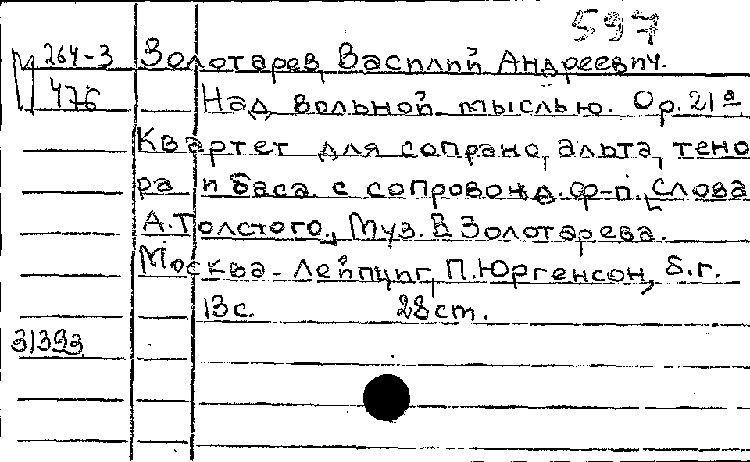 597
М 264-3 Золотарев, Василий Андреевич.
476 Над вольной мыслью. Op. 21а
Квартет для сопрано, альта, тено
ра и баса с сопровожд. ф-п., Слова
А. Толстого, Муз. В. Золотарева.
Москва - Лейпциг, П. Юргенсон, б.г.
13 с. 28 ст.
31393